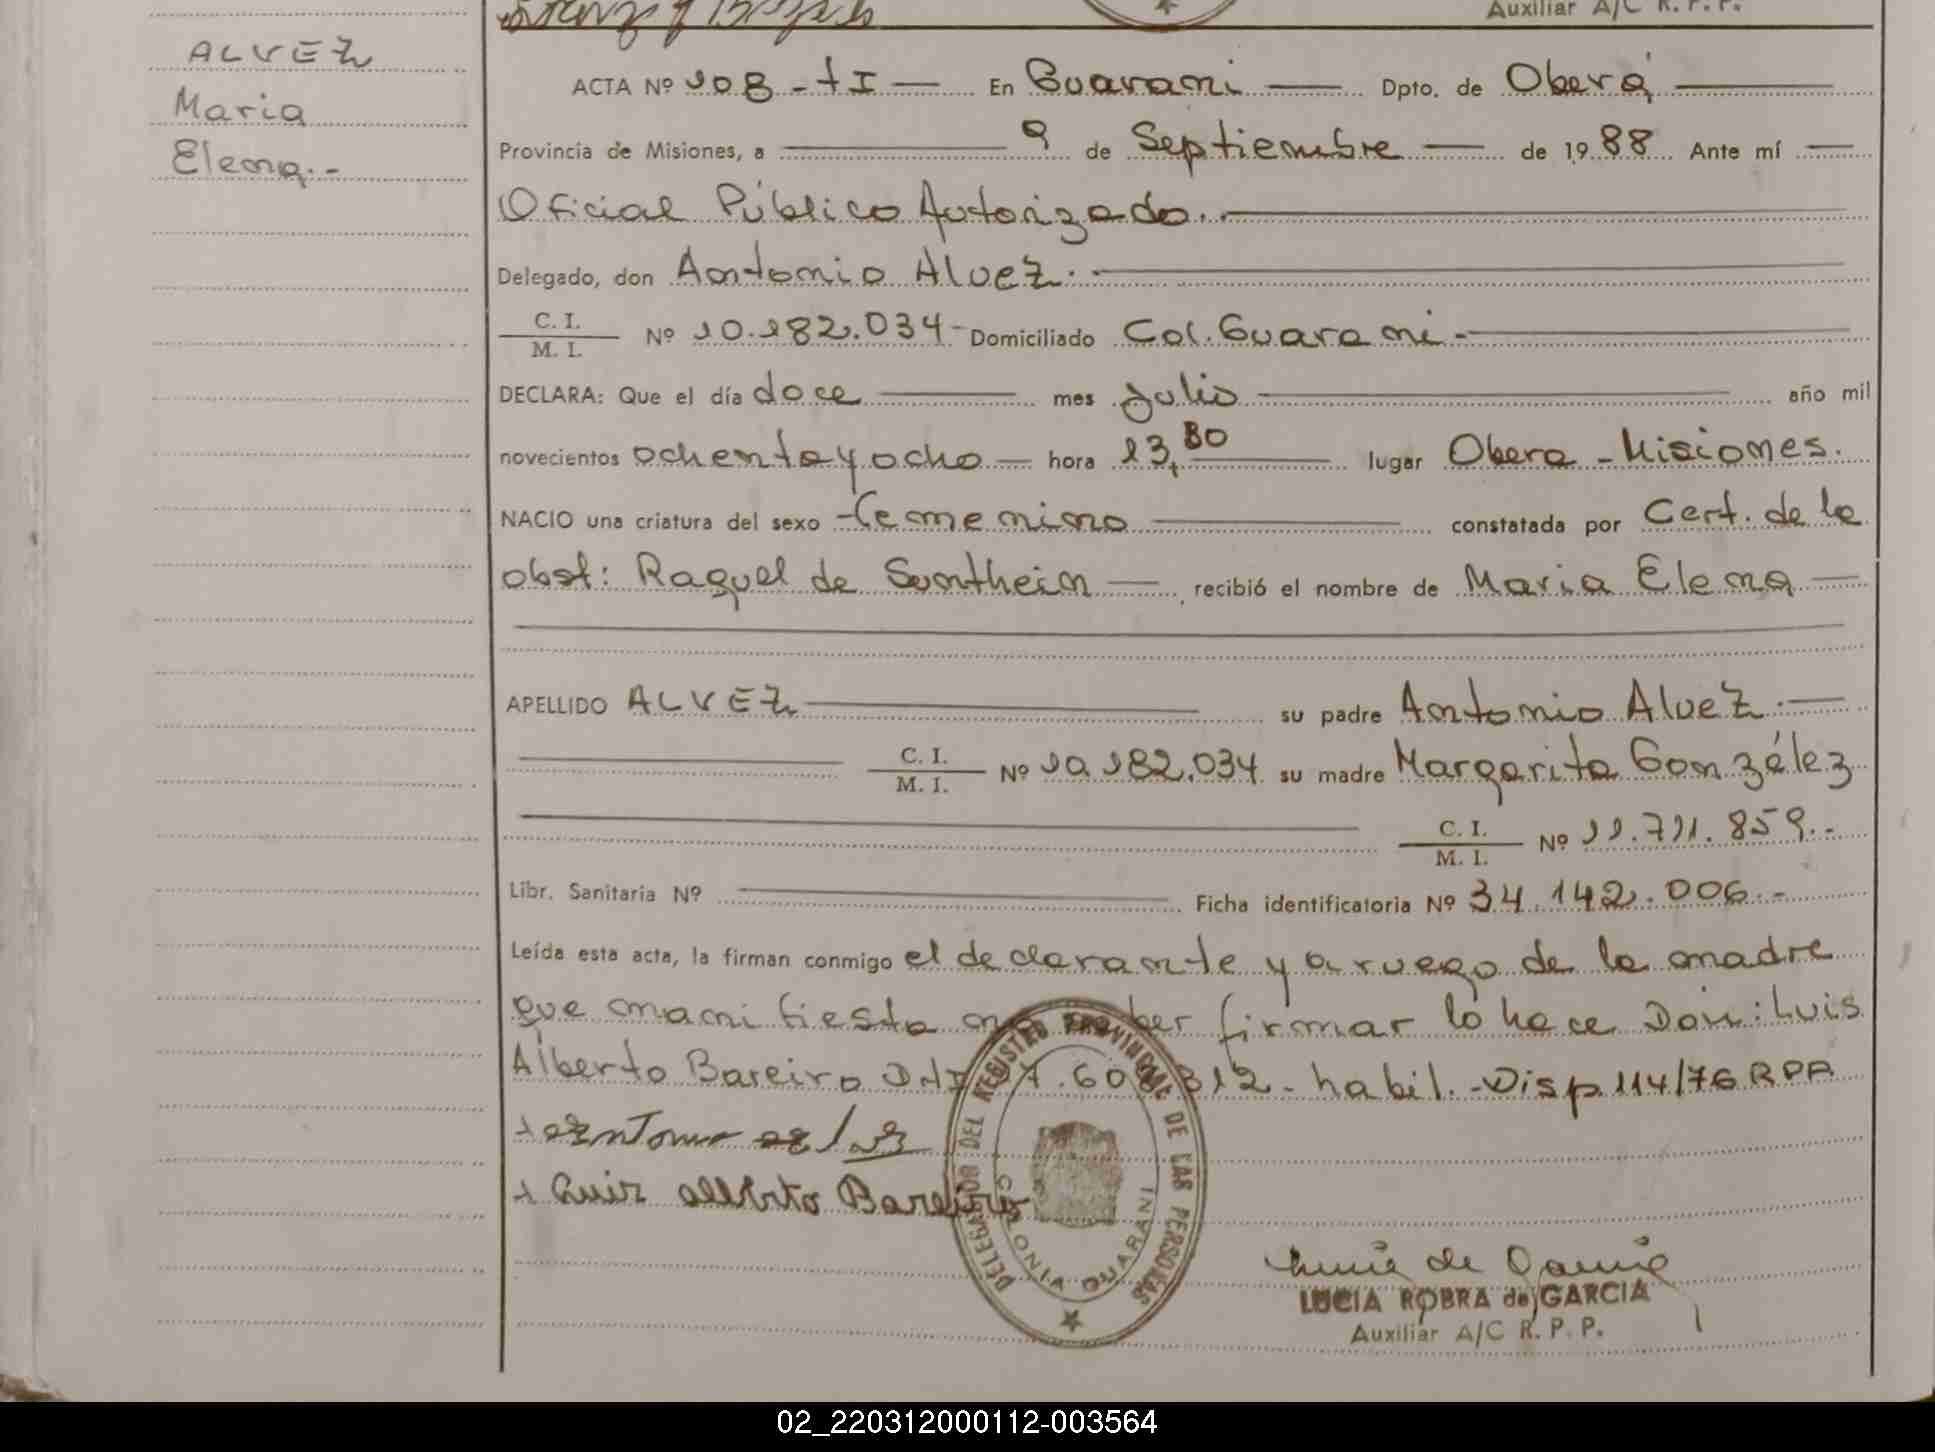 Auxiliar A/C R. P. P.
ALVEZ
Maria
Elena.-
ACTA Nº 108 - tI — En Guarani — Dpto. de Oberá —
Provincia de Misiones, a — 9 de Septiembre — de 1988 Ante mí —
Oficial Público Autorizado. —
Delegado, don Antonio Alvez. —
C. I.
M. I. Nº 10.182.034 - Domiciliado Col. Guarani. —
DECLARA: Que el día doce — mes Julio — año mil
novecientos ochenta y ocho — hora 13,30 — lugar Obera - Misiones.
NACIO una criatura del sexo femenino — constatada por Cert. de la
obst: Raquel de Sunthein — recibió el nombre de Maria Elena —
APELLIDO ALVEZ — su padre Antonio Alvez. —
— C. I.
M. I. Nº 10.182.034 su madre Margarita González
— C. I.
M. I. Nº 11.711.859.-
Libr. Sanitaria Nº — Ficha identificatoria Nº 34.142.006.-
Leída esta acta, la firman conmigo el declarante y a ruego de la madre
que manifiesta no saber firmar lo hace Don: Luis
Alberto Bareiro DNI 312 - habil. - Disp 114/76 RPP
+ Luis Alberto Bareiro
DELEGACION DEL REGISTRO PROVINCIAL DE LAS PERSONAS
COLONIA GUARANI
Lucia de Garcia
LUCIA ROBRA de GARCIA
Auxiliar A/C R. P. P.
02_220312000112-003564